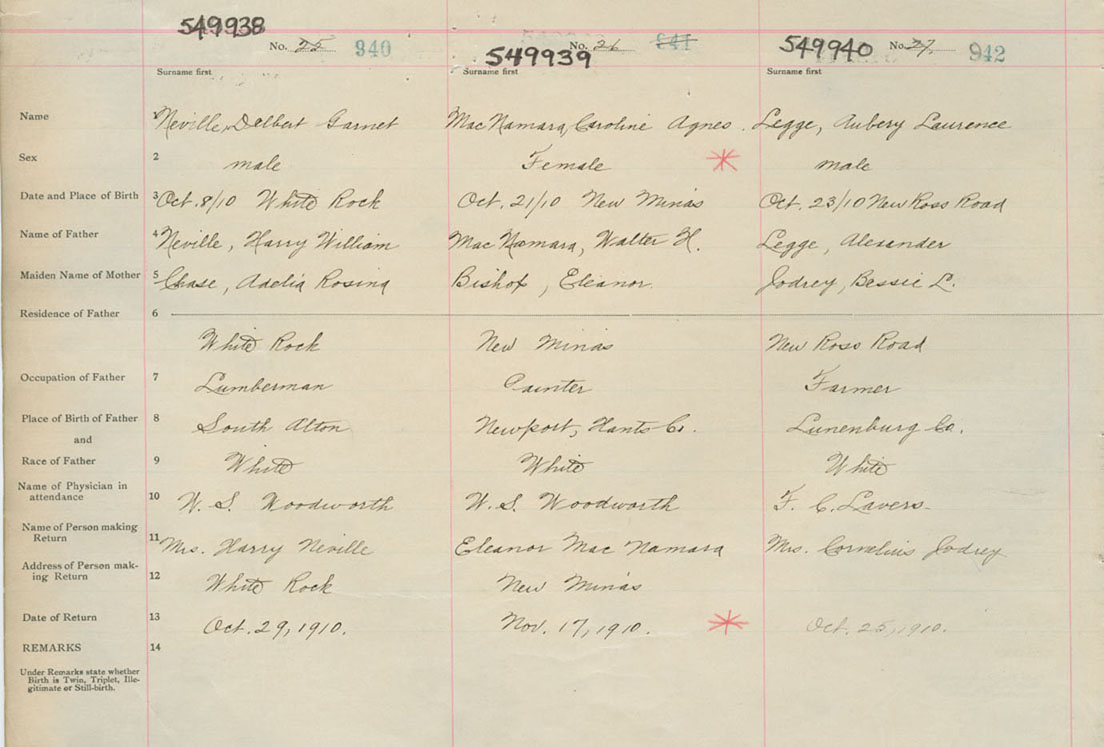 549938 549939 549940
No. 25 940 No. 26 941 No. 27 942
Surname first Surname first Surname first
Name 1 Neville, Delbert Garnet MacNamara, Caroline Agnes. Legge, Aubery Laurence
Sex 2 male Female male
Date and Place of Birth 3 Oct. 8/10 White Rock Oct. 21/10 New Minas Oct. 23/10 New Ross Road
Name of Father 4 Neville, Harry William MacNamara, Walter H. Legge, Alexander
Maiden Name of Mother 5 Chase, Adelia Rosina Bishop, Eleanor. Jodrey, Bessie L.
Residence of Father 6
White Rock New Minas New Ross Road
Occupation of Father 7 Lumberman Painter Farmer
Place of Birth of Father 8 South Alton Newport, Hants Co. Lunenburg Co.
and
Race of Father 9 White White White
Name of Physician in
attendance 10 W. S. Woodworth W. S. Woodworth F. C. Lavers
Name of Person making
Return 11 Mrs. Harry Neville Eleanor MacNamara Mrs. Cornelius Jodrey
Address of Person mak-
ing Return 12 White Rock New Minas
Date of Return 13 Oct. 29, 1910. Nov. 17, 1910. Oct. 25, 1910.
REMARKS 14
Under Remarks state whether
Birth is Twin, Triplet, Ille-
gitimate or Still-birth.